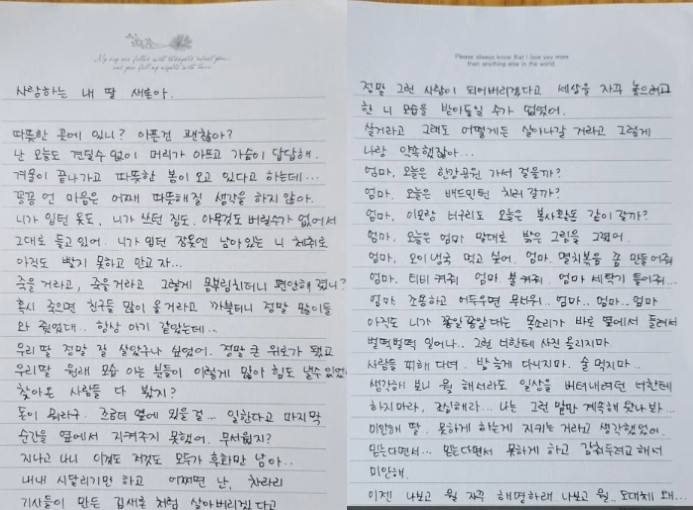 My day are filled with thoughts about you,
and you fill my nights with love.
사랑하는 내 딸 새론아.
따뜻한 곳에 있니? 아픈건 괜찮아?
난 오늘도 견딜수 없이 머리가 아프고 가슴이 답답해.
겨울이 끝나가고 따뜻한 봄이 오고 있다고 하는데...
꽁꽁 언 마음은 어째 따뜻해질 생각을 하지 않아.
니가 입던 옷도, 니가 쓰던 짐도. 아무것도 버릴수가 없어서
그대로 들고 있어. 니가 입던 잠옷엔 남아있는 니 체취로
아직도 빨지 못하고 안고 자...
죽을 거라고, 죽을거라고 그렇게 몸부림치더니 편안해 졌니?
혹시 죽으면 친구들 많이 올거라고 까불더니 정말 많이들
와 줬었대.. 항상 아기 같았는데..
우리 딸 정말 잘 살았구나 싶었어. 정말 큰 위로가 됐고
우리딸 원래 모습 아는 분들이 이렇게 많아 힘도 낼수 있었어
찾아온 사람들 다 봤지?
돈이 뭐라구. 조금더 옆에 있을 걸... 일한다고 마지막
순간을 옆에서 지켜주지 못했어. 무서웠지?
지나고 나니 이것도 저것도 모두가 후회만 남아..
내내 시달리기만 하고 어쩌면 난, 차라리
기사들이 만든 김새론 처럼 살아버리겠다고
Please always know that I love you more
than anything else in the world.
정말 그런 사람이 되어버리겠다고 세상을 자꾸 놓으려고
한 니 모습을 받아들일 수가 없었어.
살거라고 그래도 어떻게든 살아나갈 거라고 그렇게
나랑 약속했잖아...
엄마, 오늘은 한강공원 가서 걸을까?
엄마. 오늘은 배드민턴 치러 갈까?
엄마, 이모랑 너구리도 오늘은 봉사활동 같이 갈까?
엄마. 오늘은 엄마 말대로 밝은 그림을 그렸어.
엄마, 오이냉국 먹고 싶어. 엄마. 멸치볶음 좀 만들어줘
엄마. 티비 켜줘 엄마 불 켜줘. 엄마 세탁기 틀어줘...
엄마 조용하고 어두우면 무서워.. 엄마.. 엄마.. 엄마
아직도 니가 쫑알쫑알대는 목소리가 바로 옆에서 들려서
벌떡벌떡 일어나.. 그런 너한테 사진 올리지마
사람들 피해 다녀. 밤 늦게 다니지마. 술 먹지마..
생각해 보니 뭘 해서라도 일상을 버텨내려던 너한테
하지마라, 조심해라... 나는 그런 말만 계속해 왔나 봐...
미안해 딸. 못하게 하는게 지키는 거라고 생각했었어.
믿는다면서... 믿는다면서 못하게 하고 감춰두려고 해서
미안해.
이젠 나보고 뭘 자꾸 해명하래 나보고 뭘.. 도대체 왜...